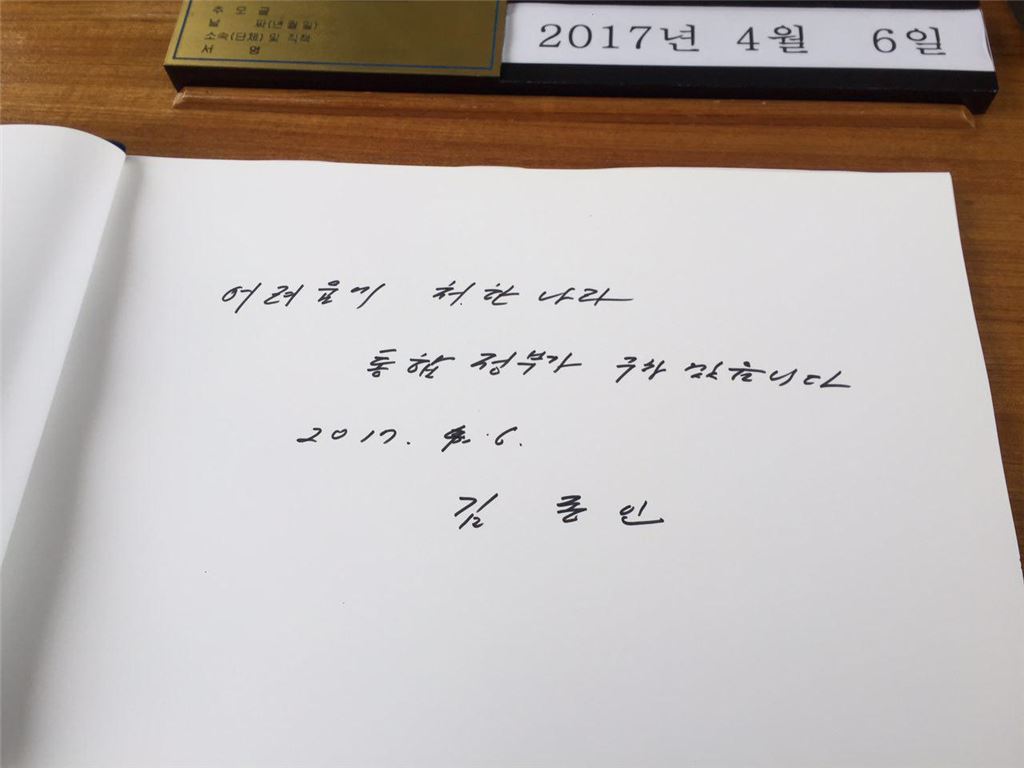 추 모 글
날 짜(년월일)
소속(단체) 및 직책
서 명
2017년 4월 6일
어려움에 처한 나라
통합정부가 구하겠습니다
2017. 4. 6.
김 종 인